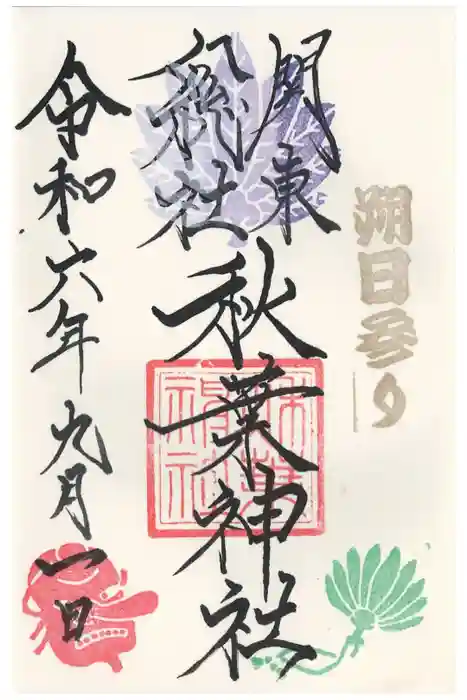 朔日参り
関東
総社
秋葉神社
令和六年九月一日